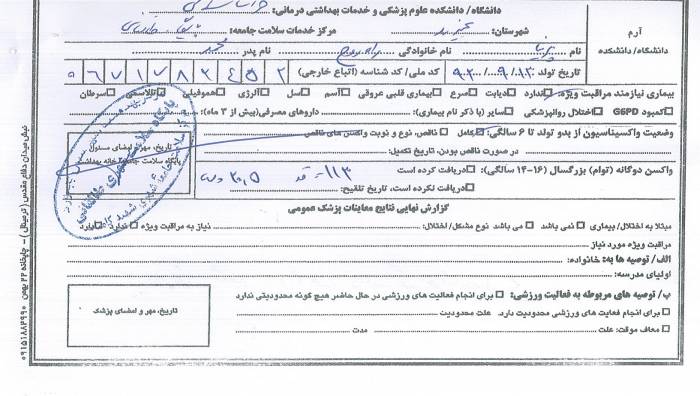 دانشگاه/ دانشکده علوم پزشکی و خدمات بهداشتی درمانی:
آرم
دانشگاه/ دانشکده
شهرستان: مرکز خدمات سلامت جامعه:
نام پرنیا نام خانوادگی نام پدر محمد
تاریخ تولد ۹۲/۰۹/۰۱۲ کد ملی/ کد شناسه (اتباع خارجی)
بیماری نیازمند مراقبت ویژه: ندارد دیابت صرع بیماری قلبی عروقی آسم سل آلرژی هموفیلی تالاسمی سرطان
کمبود G6PD اختلال روانپزشکی سایر (با ذکر نام بیماری): داروهای مصرفی(بیش از ۳ ماه):
وضعیت واکسیناسیون از بدو تولد تا ۶ سالگی: کامل ناقص، نوع و نوبت واکسن های ناقص
در صورت ناقص بودن، تاریخ تکمیل:
تاریخ، مهر و امضای مسئول
پایگاه سلامت جامعه/ خانه بهداشت
واکسن دوگانه (توام) بزرگسال (۱۶-۱۴ سالگی): دریافت کرده است
قد ۱۱۳ ۲۰,۵
دریافت نکرده است، تاریخ تلقیح:
گزارش نهایی نتایج معاینات پزشک عمومی
مبتلا به اختلال/ بیماری نمی باشد می باشد نوع مشکل/ اختلال: نیاز به مراقبت ویژه ندارد دارد
مراقبت ویژه مورد نیاز
الف/ توصیه ها به: خانواده:
اولیای مدرسه:
ب/ توصیه های مربوطه به فعالیت ورزشی: برای انجام فعالیت های ورزشی در حال حاضر هیچ گونه محدودیتی ندارد
برای انجام فعالیت های ورزشی محدودیت دارد. علت محدودیت
معاف موقت: علت مدت
تاریخ، مهر و امضای پزشک
نبش میدان دفاع مقدس (ترمینال) - چاپخانه ۲۲ بهمن